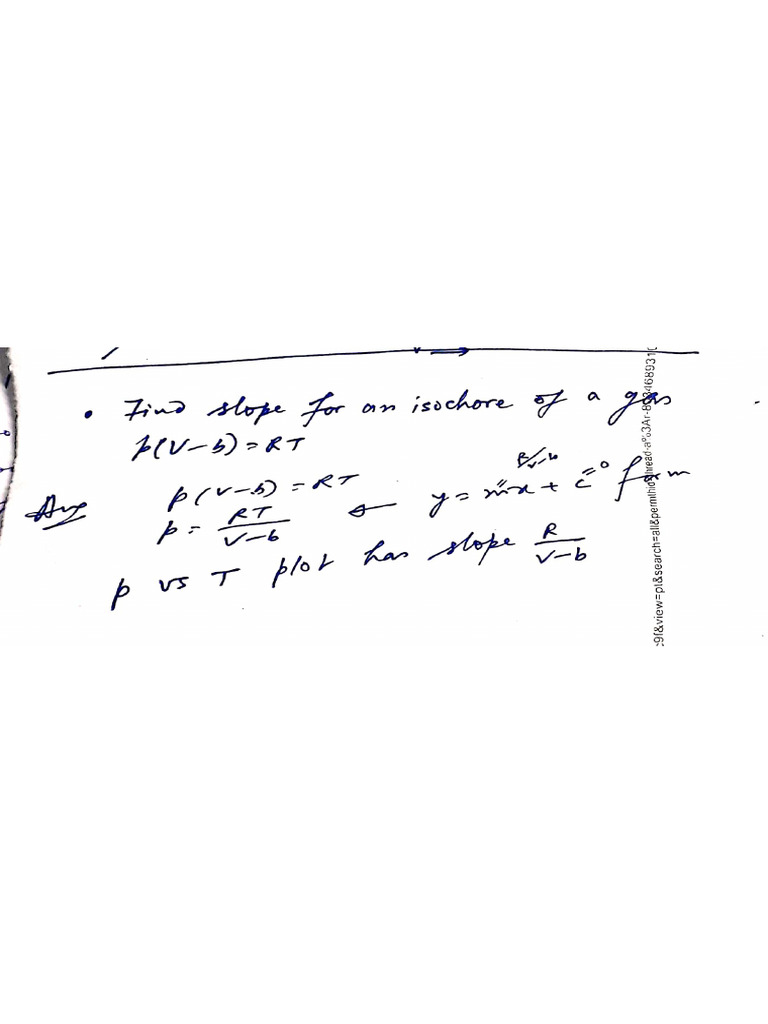 • Find slope for an isochore of a gas
p(V-b)=RT
Ans p(V-b)=RT
p = RT/V-b ← y = mx + c form
R/V-b =0
p vs T plot has slope R/V-b
:9f&view=pl&search=all&permthid=thread-a%3Ar-8